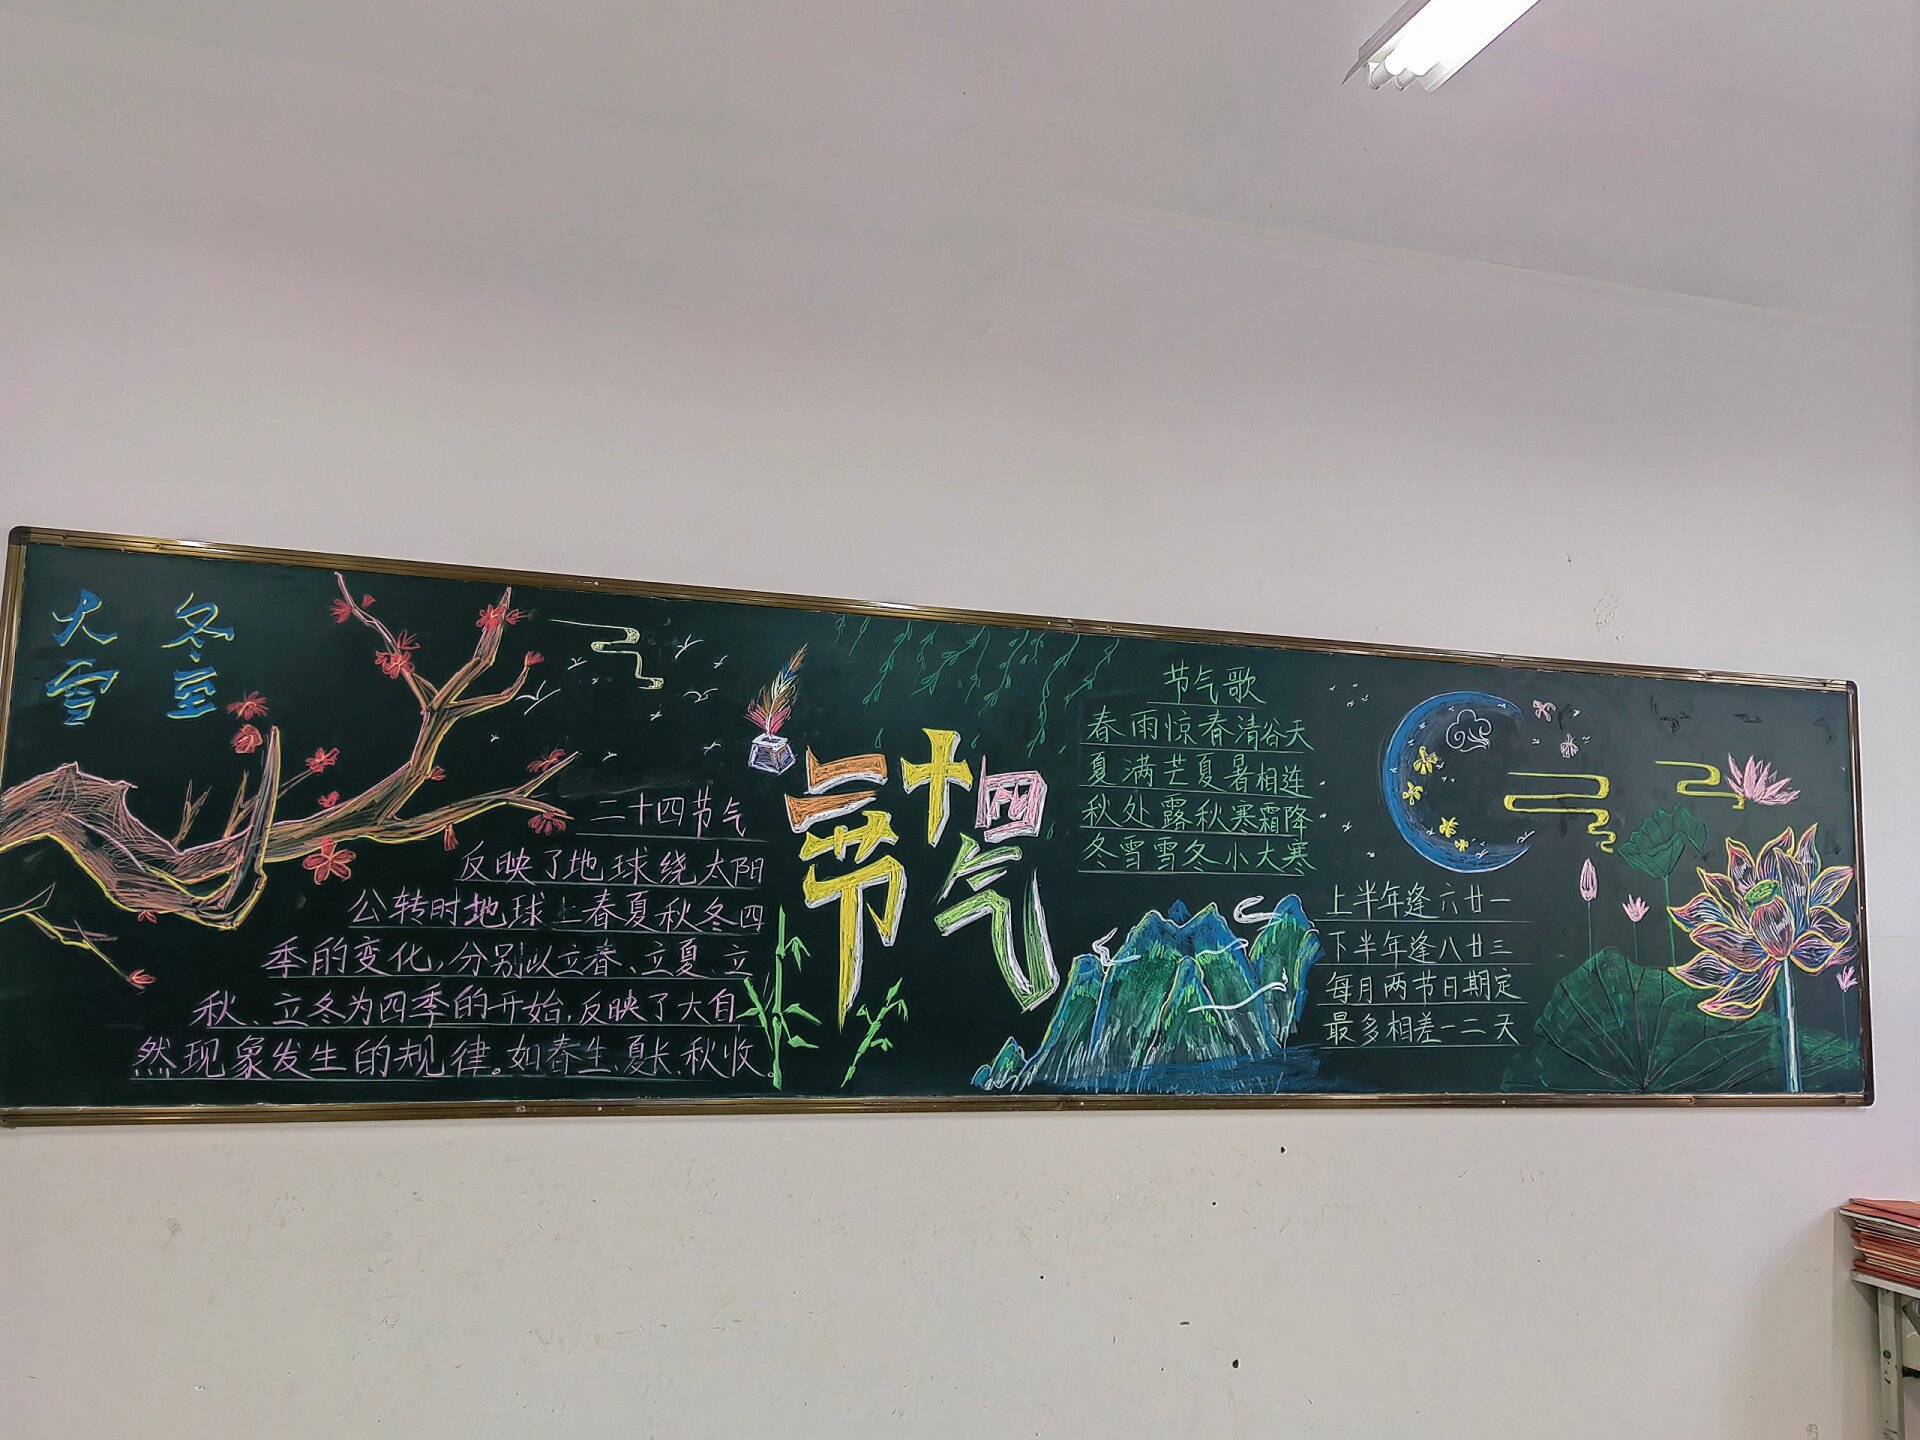 大雪
冬至
二十四节气
反映了地球绕太阳
公转时地球上春夏秋冬四
季的变化,分别以立春、立夏、立
秋、立冬为四季的开始,反映了大自
然现象发生的规律。如春生、夏长、秋收。
二十四
节气
节气歌
春雨惊春清谷天
夏满芒夏暑相连
秋处露秋寒霜降
冬雪雪冬小大寒
上半年逢六廿一
下半年逢八廿三
每月两节日期定
最多相差一二天